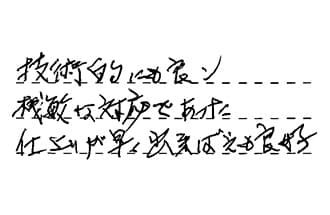 技術的にも良い
機敏な対応であった
仕上りが早く出来ばえも良好